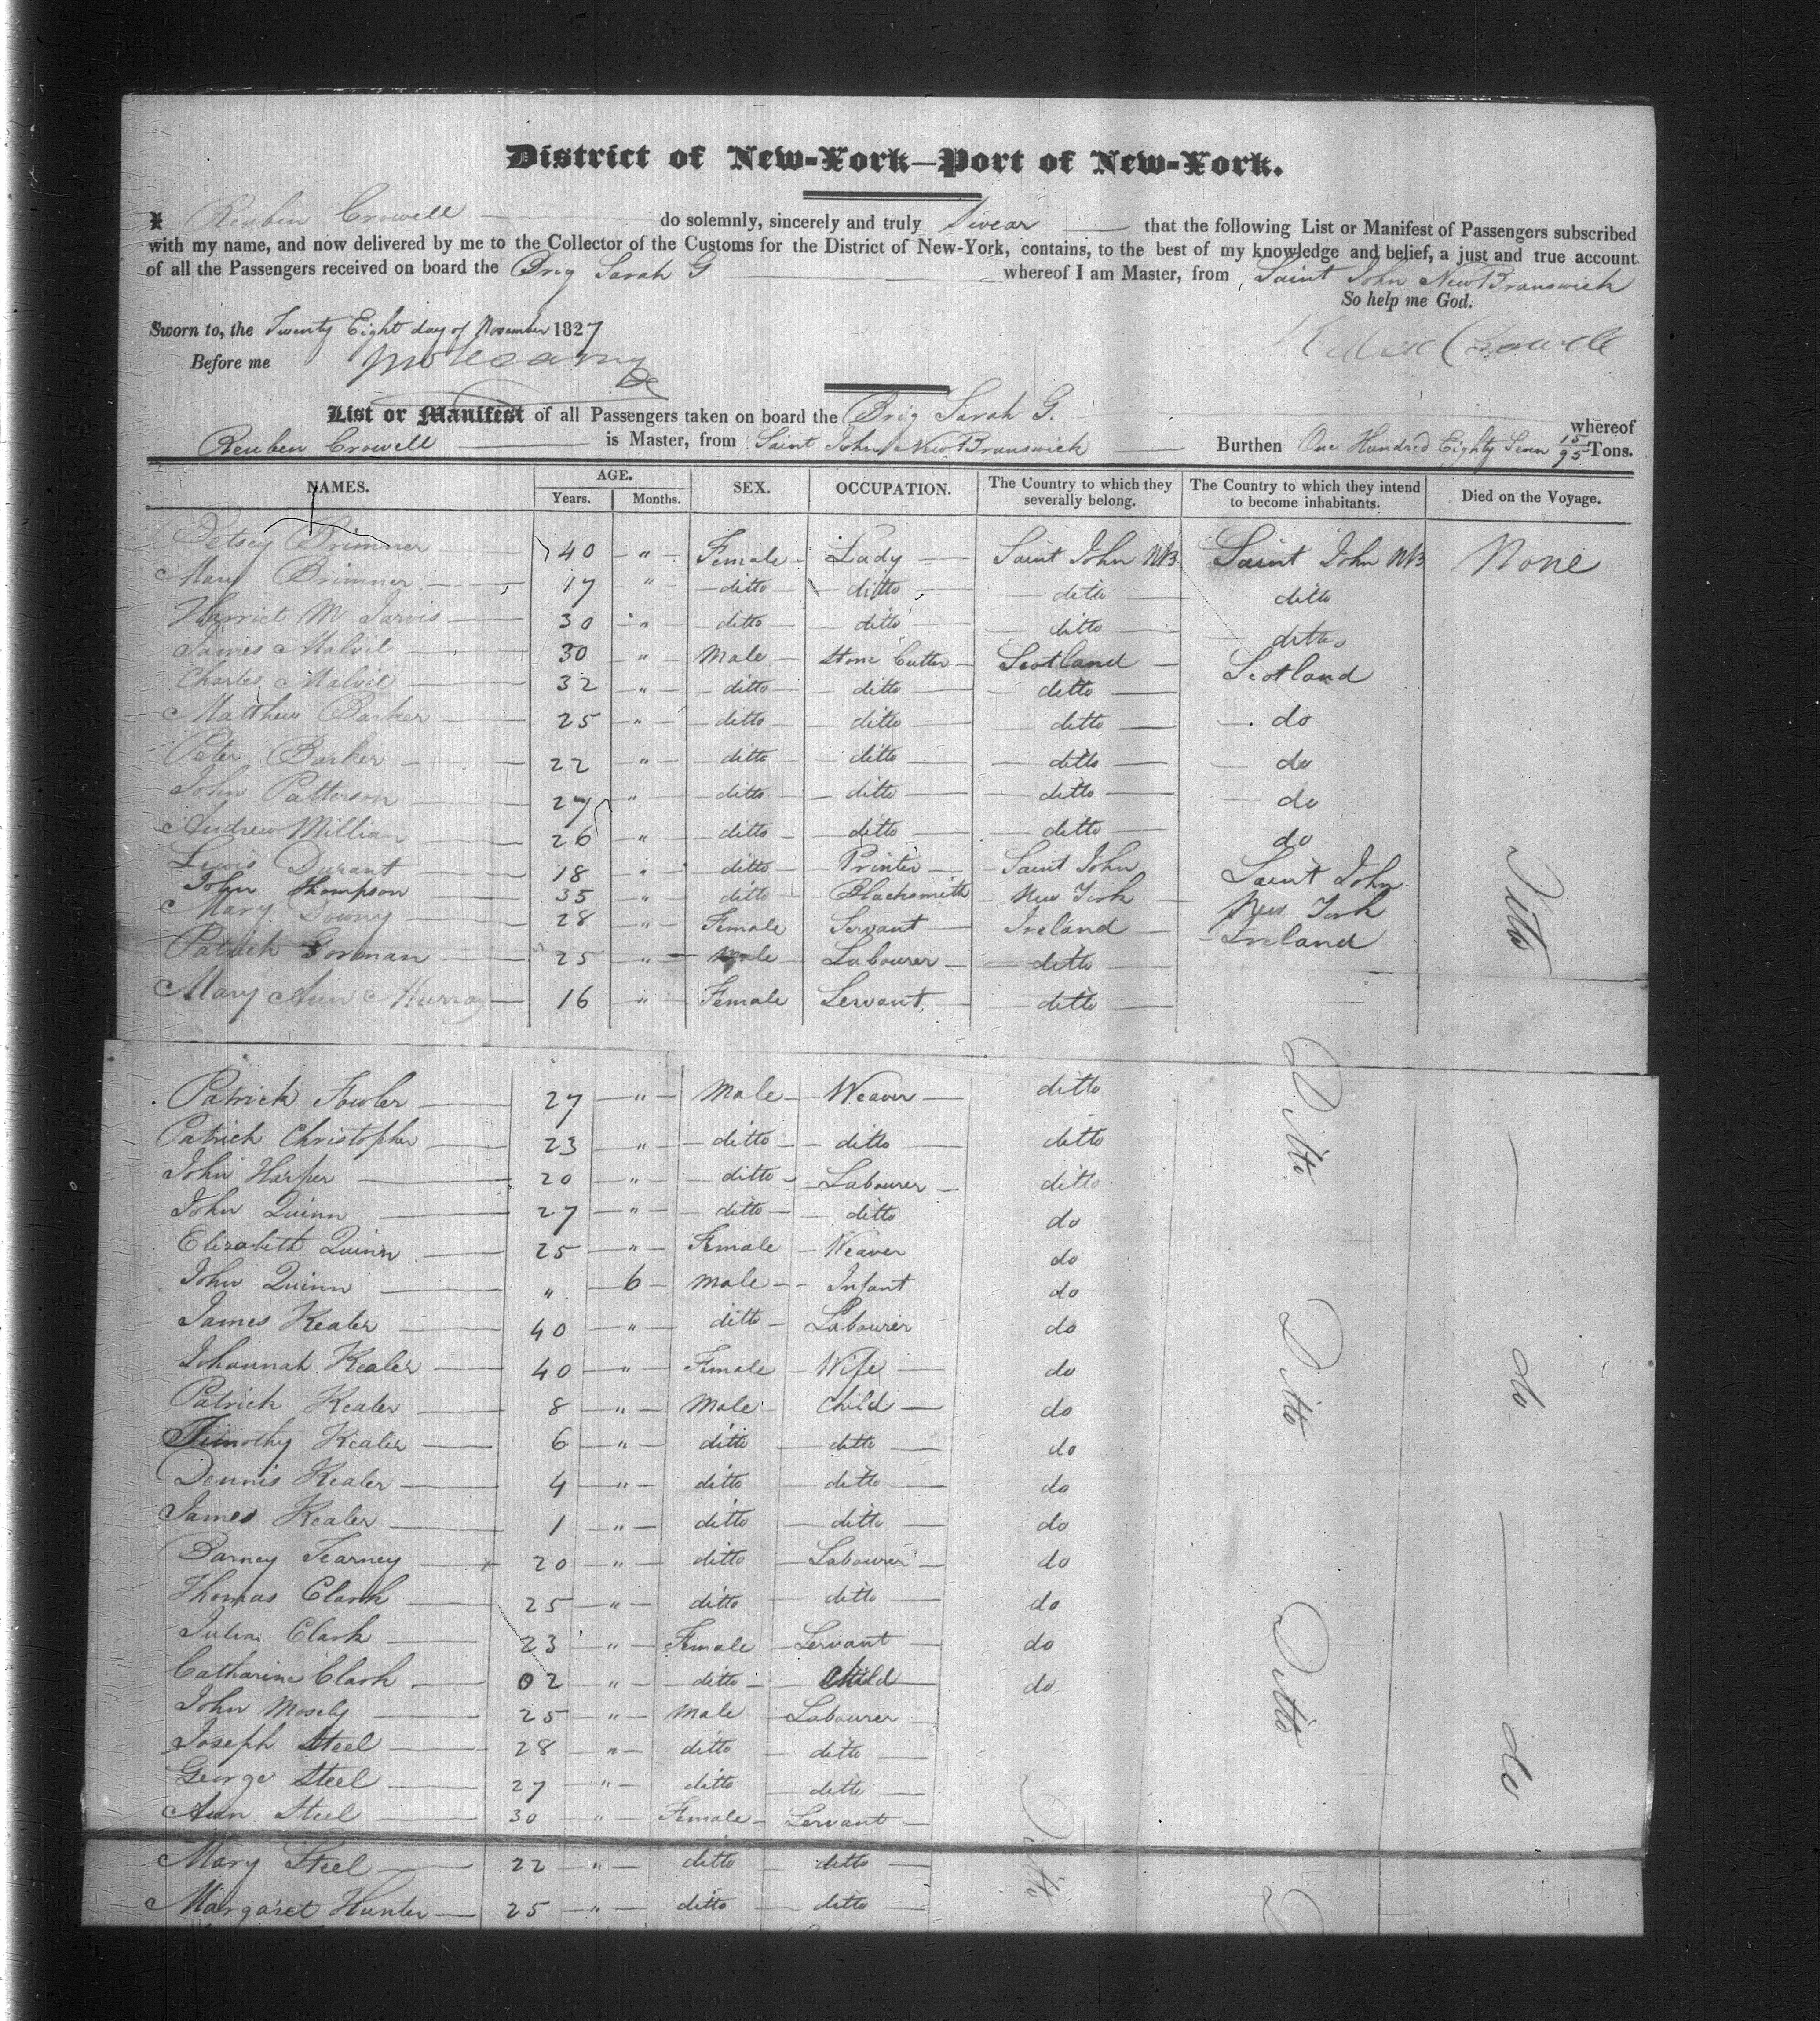 District of New-York—Port of New-York.
I Reuben Crowell do solemnly, sincerely and truly Swear that the following List or Manifest of Passengers subscribed
with my name, and now delivered by me to the Collector of the Customs for the District of New-York, contains, to the best of my knowledge and belief, a just and true account
of all the Passengers received on board the Brig Sarah G whereof I am Master, from Saint John New Brunswick
So help me God.
Sworn to, the Twenty Eight day of November 1827
Reuben Crowell
Before me
List or Manifest of all Passengers taken on board the Brig Sarah G. whereof
Reuben Crowell is Master, from Saint John New Brunswick Burthen One Hundred Eighty 15/95 Tons.
NAMES. AGE. Years. Months. SEX. OCCUPATION. The Country to which they severally belong. The Country to which they intend to become inhabitants. Died on the Voyage.
Betsey Brimner 40 " Female Lady Saint John NB Saint John NB None
Mary Brimner 17 " ditto ditto ditto ditto
Harriet M Jarvis 30 " ditto ditto ditto ditto
James Malvil 30 " Male Stone Cutter Scotland Scotland
Charles Malvil 32 " ditto ditto ditto
Matthew Barker 25 " ditto ditto ditto do
Peter Barker 22 " ditto ditto ditto do
John Patterson 27 " ditto ditto ditto do
Andrew Millian 26 " ditto ditto ditto do
Lewis Durant 18 " ditto Printer Saint John Saint John
John Thompson 35 " ditto Blacksmith New York New York
Mary Downy 28 " Female Servant Ireland Ireland Ditto
Patrick Gorman 25 " Male Labourer ditto
Mary Ann Murray 16 " Female Servant ditto
Patrick Fowler 27 " Male Weaver ditto Ditto
Patrick Christopher 23 " ditto ditto ditto
John Harper 20 " ditto Labourer ditto
John Quinn 27 " ditto ditto do
Elizabeth Quinn 25 " Female Weaver do
John Quinn " 6 Male Infant do
James Kealer 40 " ditto Labourer do Ditto
Johannah Kealer 40 " Female Wife do do
Patrick Kealer 8 " Male Child do
Timothy Kealer 6 " ditto ditto do
Dennis Kealer 4 " ditto ditto do
James Kealer 1 " ditto ditto do
Barney Tearney 20 " ditto Labourer do
Thomas Clark 25 " ditto ditto do
Julia Clark 23 " Female Servant do Ditto
Catharine Clark 02 " ditto Child do
John Mosely 25 " Male Labourer
Joseph Steel 28 " ditto ditto do
George Steel 27 " ditto ditto
Ann Steel 30 " Female Servant Ditto
Mary Steel 22 " ditto ditto
Margaret Hunter 25 " ditto ditto